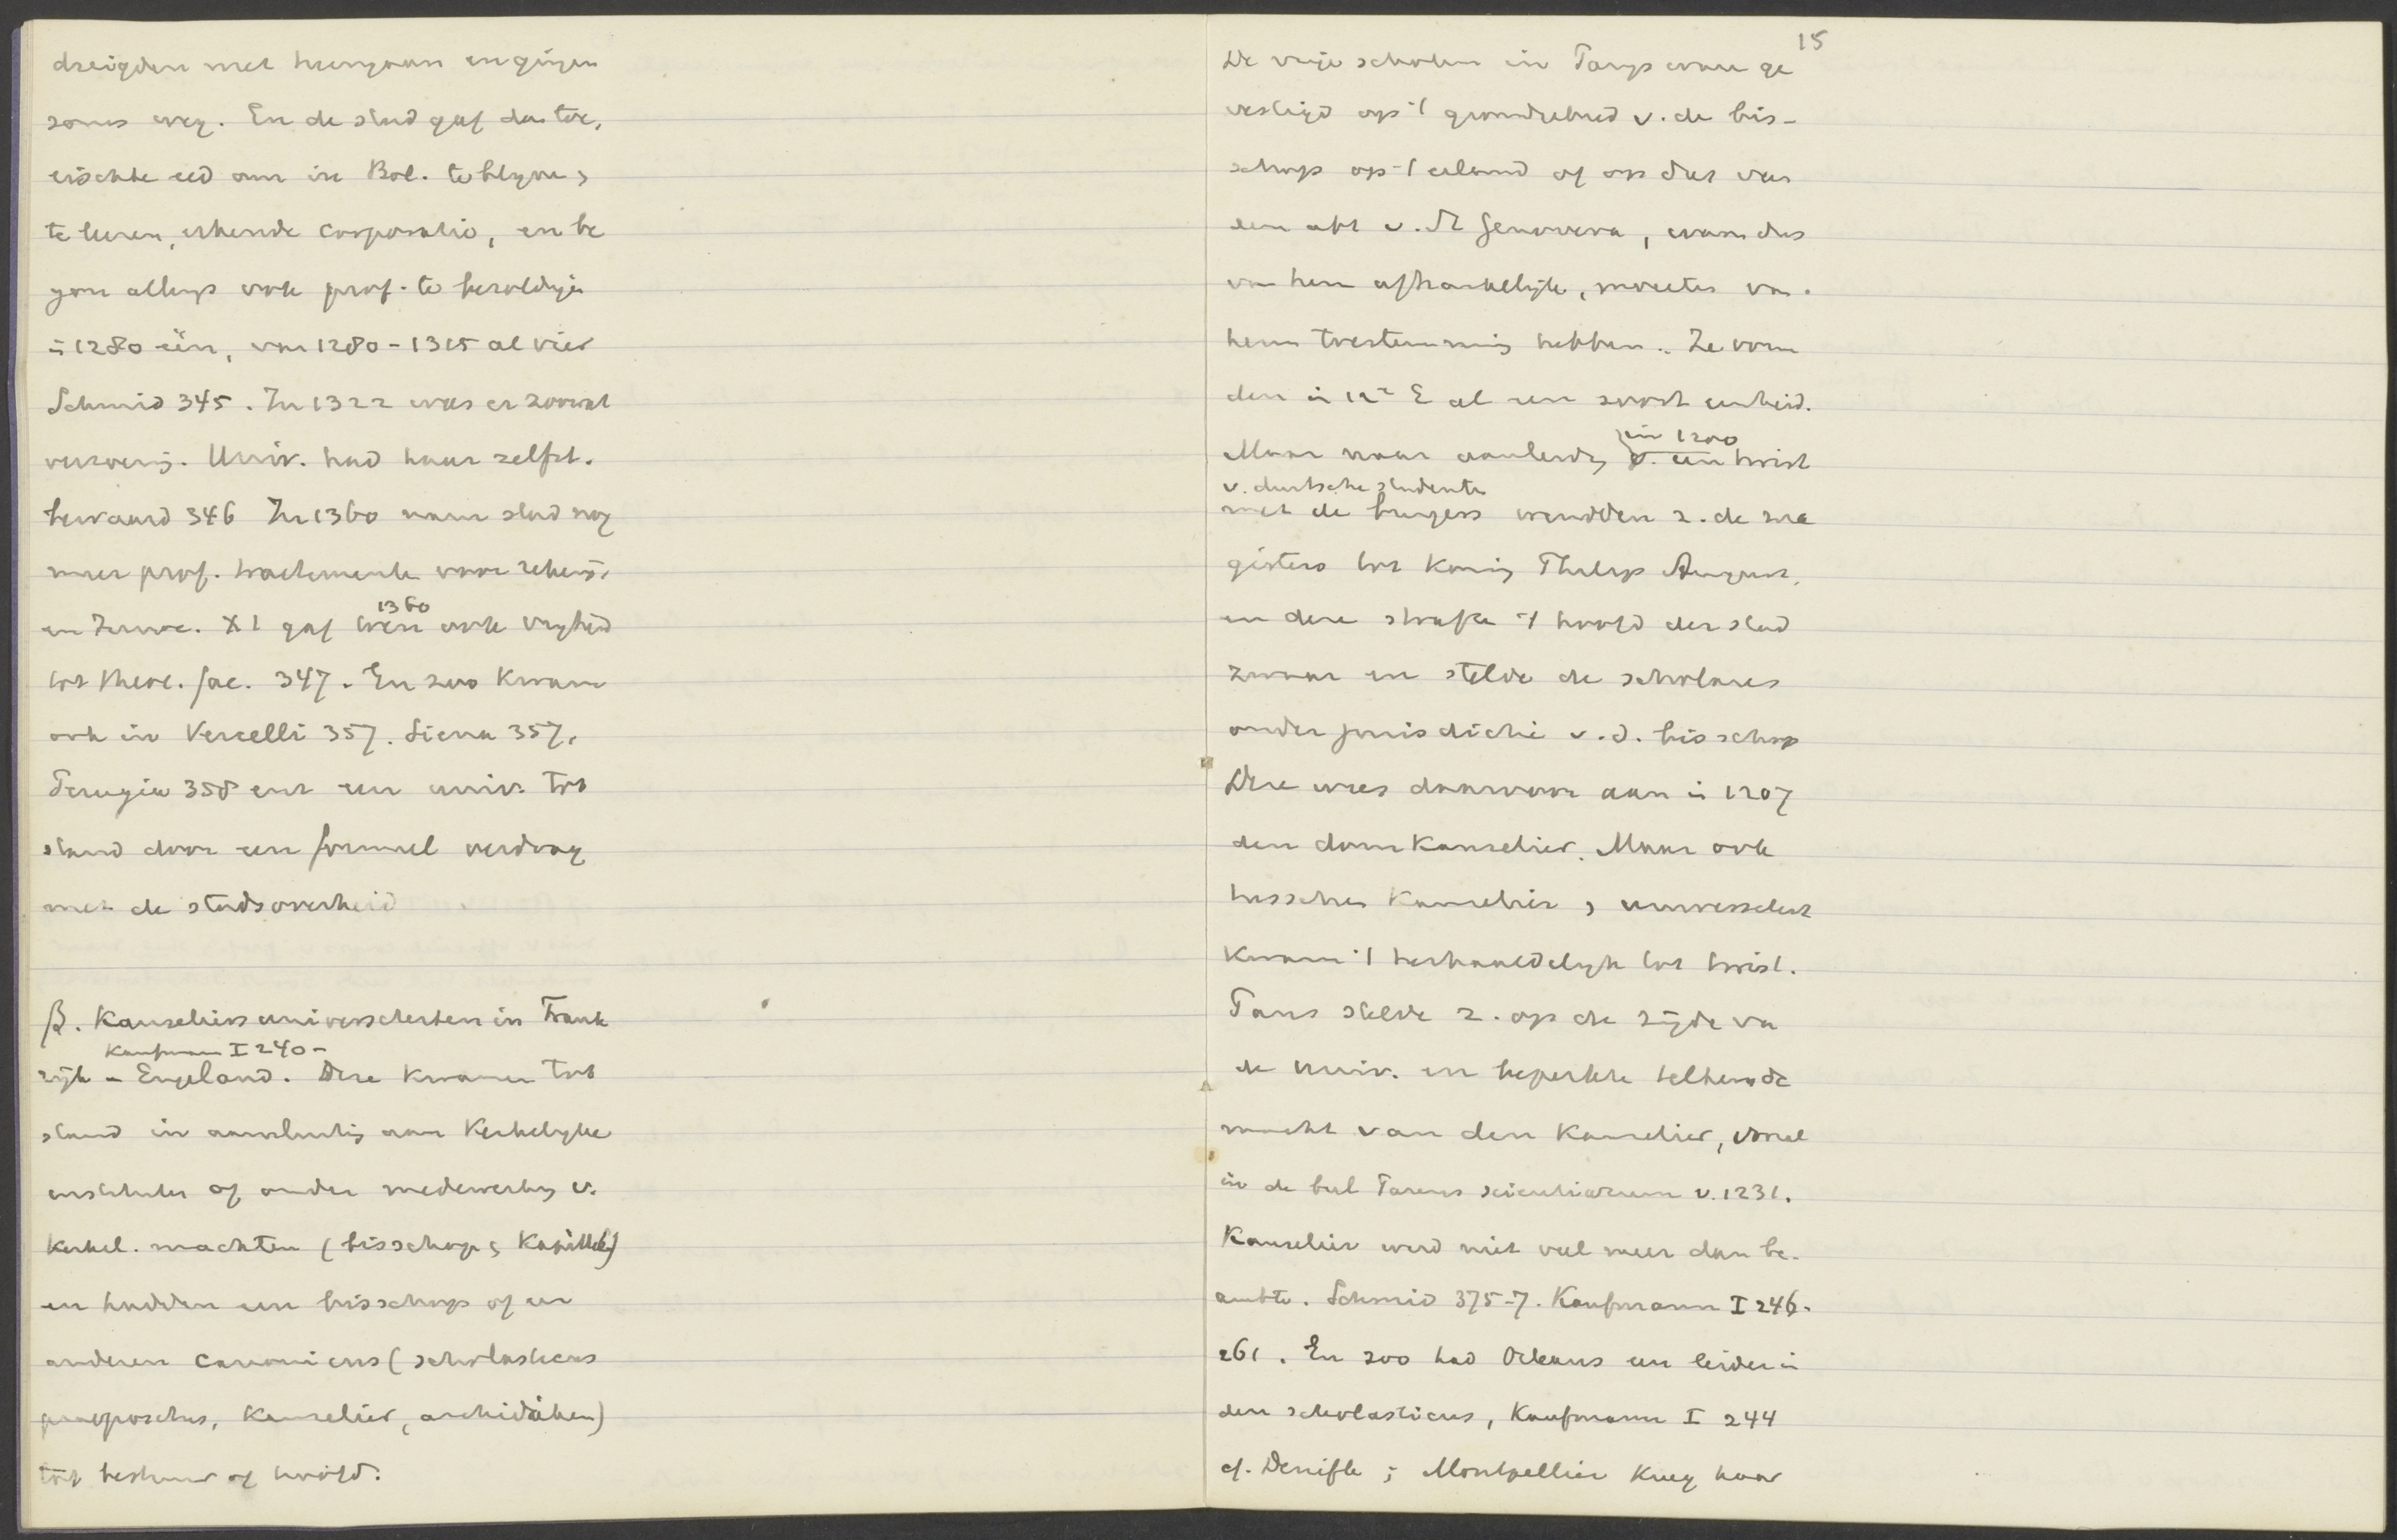 dreigden met heengaan en gingen
soms weg. En de stad gaf dan toe,
eischte eed om in Bol. te blijven,
te leeren, erkende corporatio, en be
gon allengs ook prof. te bezoldigen
in 1280 één, van 1280-1315 al vier
Schmid 345. In 1322 was er zoowat
verzoening. Univ. had haar zelfst.
bewaard 346 In 1360 nam stad nog
meer prof. tractementen voor rekening.
en Innoc. XI gaf toen 1360 ook vrijheid
tot theol. fac. 347. En zoo kwam
ook in Vercelli 357. Siena 357,
Perugia 358 enz een univ. tot
stand door een formeel verdrag
met de stadsoverheid
β. Kanseliersuniversiteiten in Frank
Kaufmann I 240-
rijk en Engeland. Deze kwamen tot
stand in aansluiting aan Kerkelijke
instituten of onder medewerking v.
Kerkel. machten (bisschop, Kapittel)
en hadden een bisschop of een
anderen canonicus (scholasticus
praepositus, Kanselier, archidiaken)
tot bestuur of hoofd.
15
De vrije scholen in Parijs waren ge
vestigd op 't grondgebied v. de bis-
schop op 't eiland of op dat van
den abt v. St Genoveva, waren dus
van hen afhankelijk, moesten van
hem toestemming hebben. Ze vorm
den in 12e E al een soort eenheid.
in 1200
Maar naar aanleiding v. een twist
v. duitsche studenten
met de burgers wendden z. de ma
gisters tot Koning Philips August,
en deze strafte 't hoofd der stad
zwaar en stelde de scholares
onder jurisdictie v.d. bisschop
Deze wees daarvoor aan in 1207
den domkanselier. Maar ook
tusschen Kanselier en universiteit
kwam 't herhaaldelijk tot twist.
Paus stelde z. op de zijde van
de univ. en beperkte telkens de
macht van den Kanselier, vooral
in de bul Parens scientiarum v. 1231.
Kanselier werd niet veel meer dan be-
ambte. Schmid 375-7. Kaufmann I 246-
261. En zoo had Orleans een leider in
den scholasticus, Kaufmann I 244
cf. Denifle; Montpellier kreeg haar